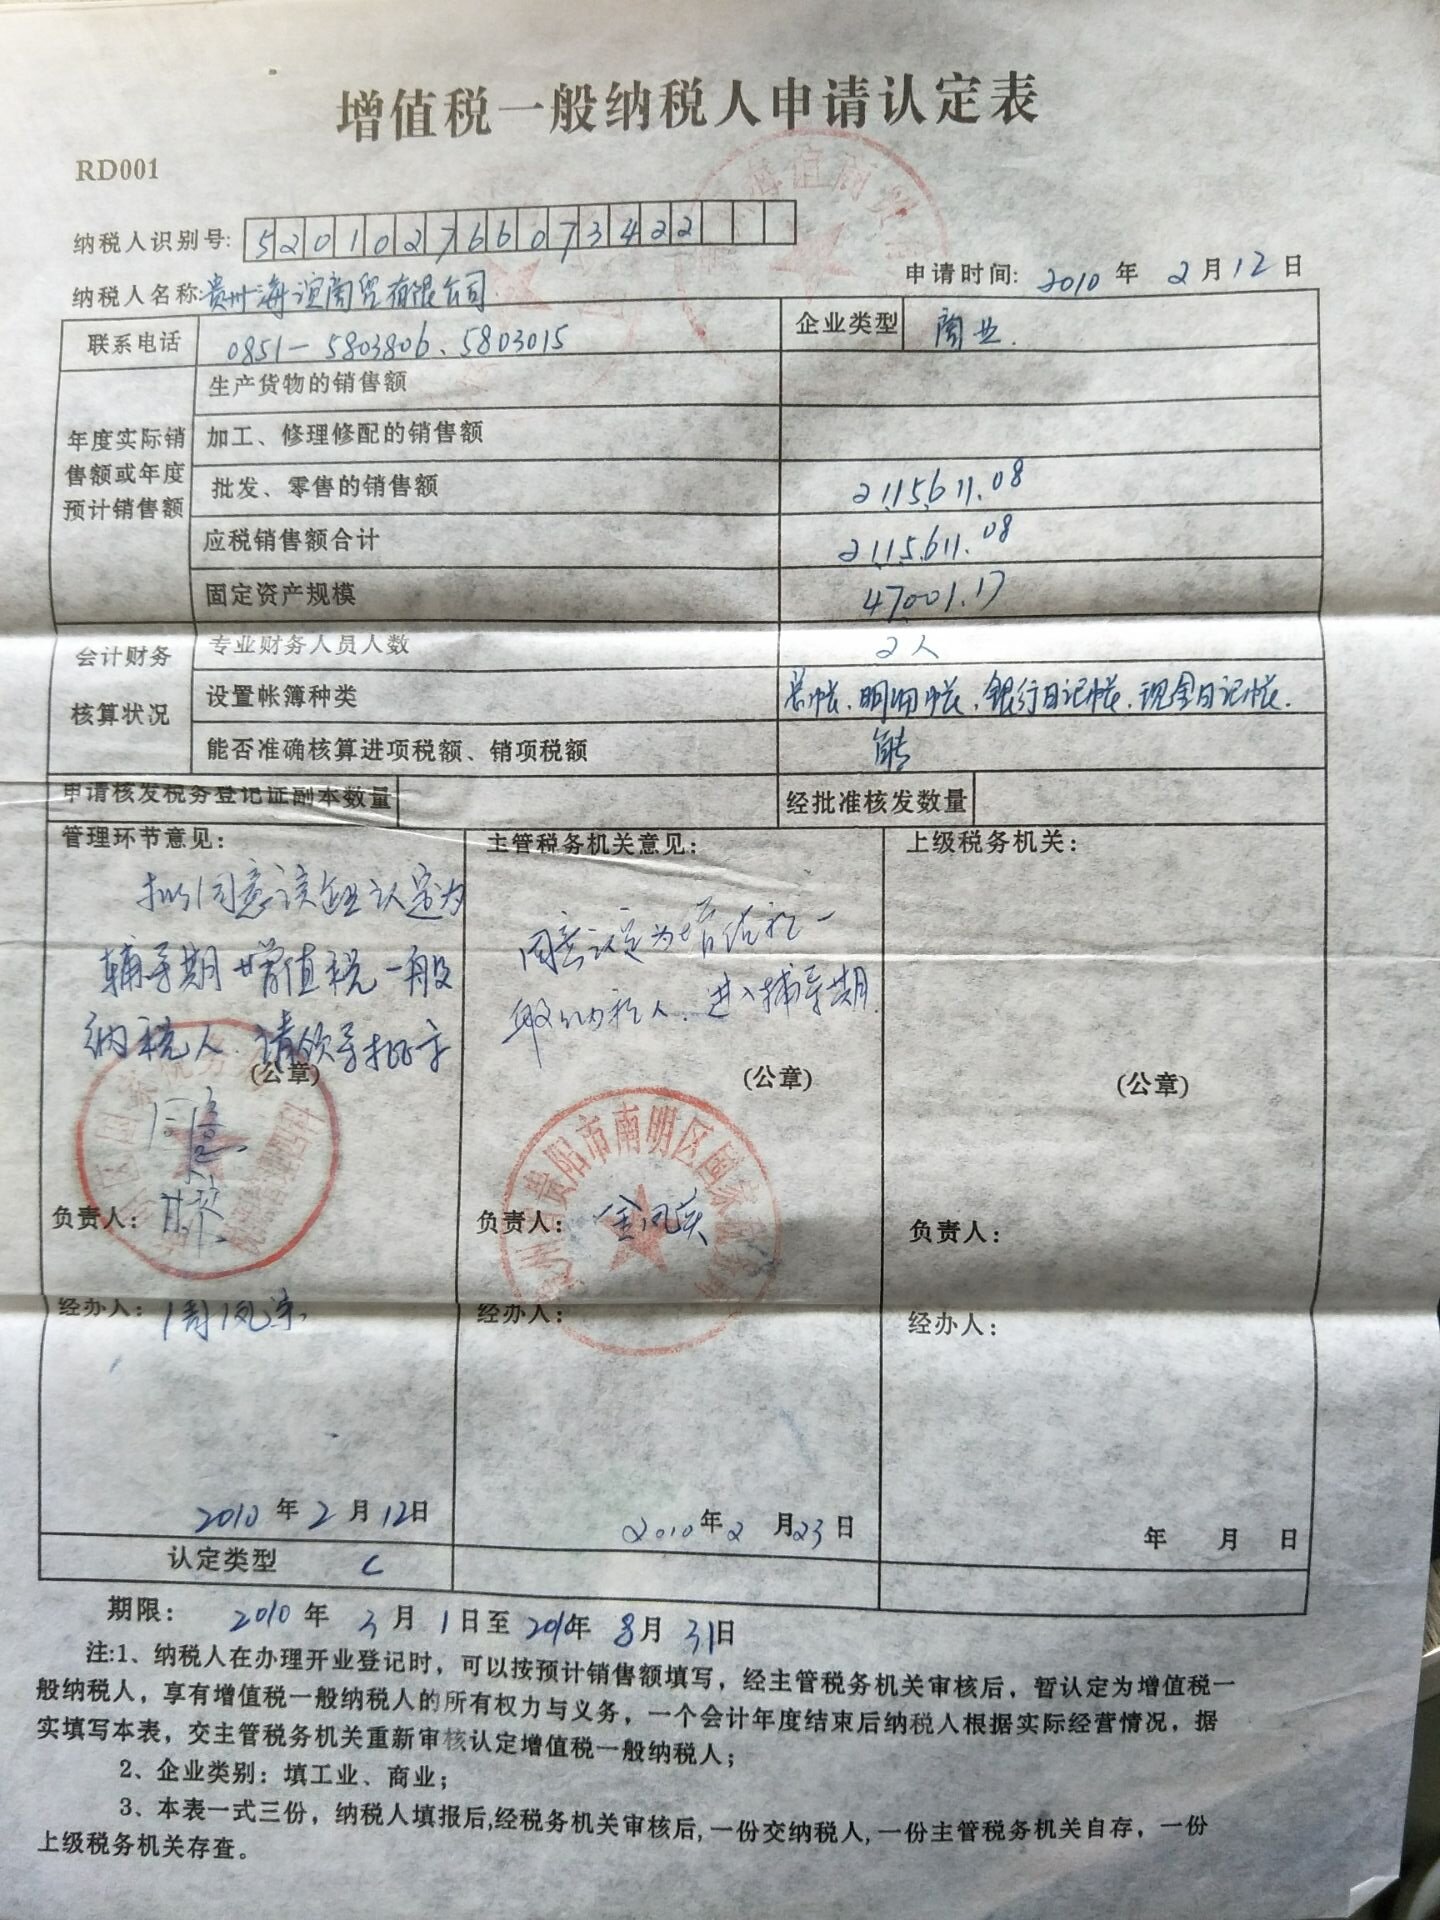 增值税一般纳税人申请认定表
RD001
纳税人识别号: 520102766073422
纳税人名称: 贵州海谊商贸有限公司
申请时间: 2010 年 2 月 12 日
联系电话 0851-5803806、5803015 企业类型 商业.
年度实际销售额或年度预计销售额
生产货物的销售额
加工、修理修配的销售额
批发、零售的销售额 2115611.08
应税销售额合计 2115611.08
固定资产规模 47001.17
会计财务核算状况
专业财务人员人数 2人
设置帐簿种类 总帐、明细帐、银行日记帐、现金日记帐.
能否准确核算进项税额、销项税额 能
申请核发税务登记证副本数量 经批准核发数量
管理环节意见:
拟同意该企业认定为
辅导期增值税一般
纳税人.请领导批示
(公章)
同意
负责人:
经办人: 周凤
2010 年 2 月 12 日
主管税务机关意见:
同意认定为增值税一
般纳税人.进入辅导期
(公章)
贵阳市南明区国家税务局
负责人: 金凤英
经办人:
2010 年 2 月 23 日
上级税务机关:
(公章)
负责人:
经办人:
年 月 日
认定类型 C
期限: 2010 年 3 月 1 日至 2010年 8 月 31 日
注:1、纳税人在办理开业登记时，可以按预计销售额填写，经主管税务机关审核后，暂认定为增值税一
般纳税人，享有增值税一般纳税人的所有权力与义务，一个会计年度结束后纳税人根据实际经营情况，据
实填写本表，交主管税务机关重新审核认定增值税一般纳税人；
2、企业类别：填工业、商业；
3、本表一式三份，纳税人填报后,经税务机关审核后,一份交纳税人,一份主管税务机关自存，一份
上级税务机关存查。